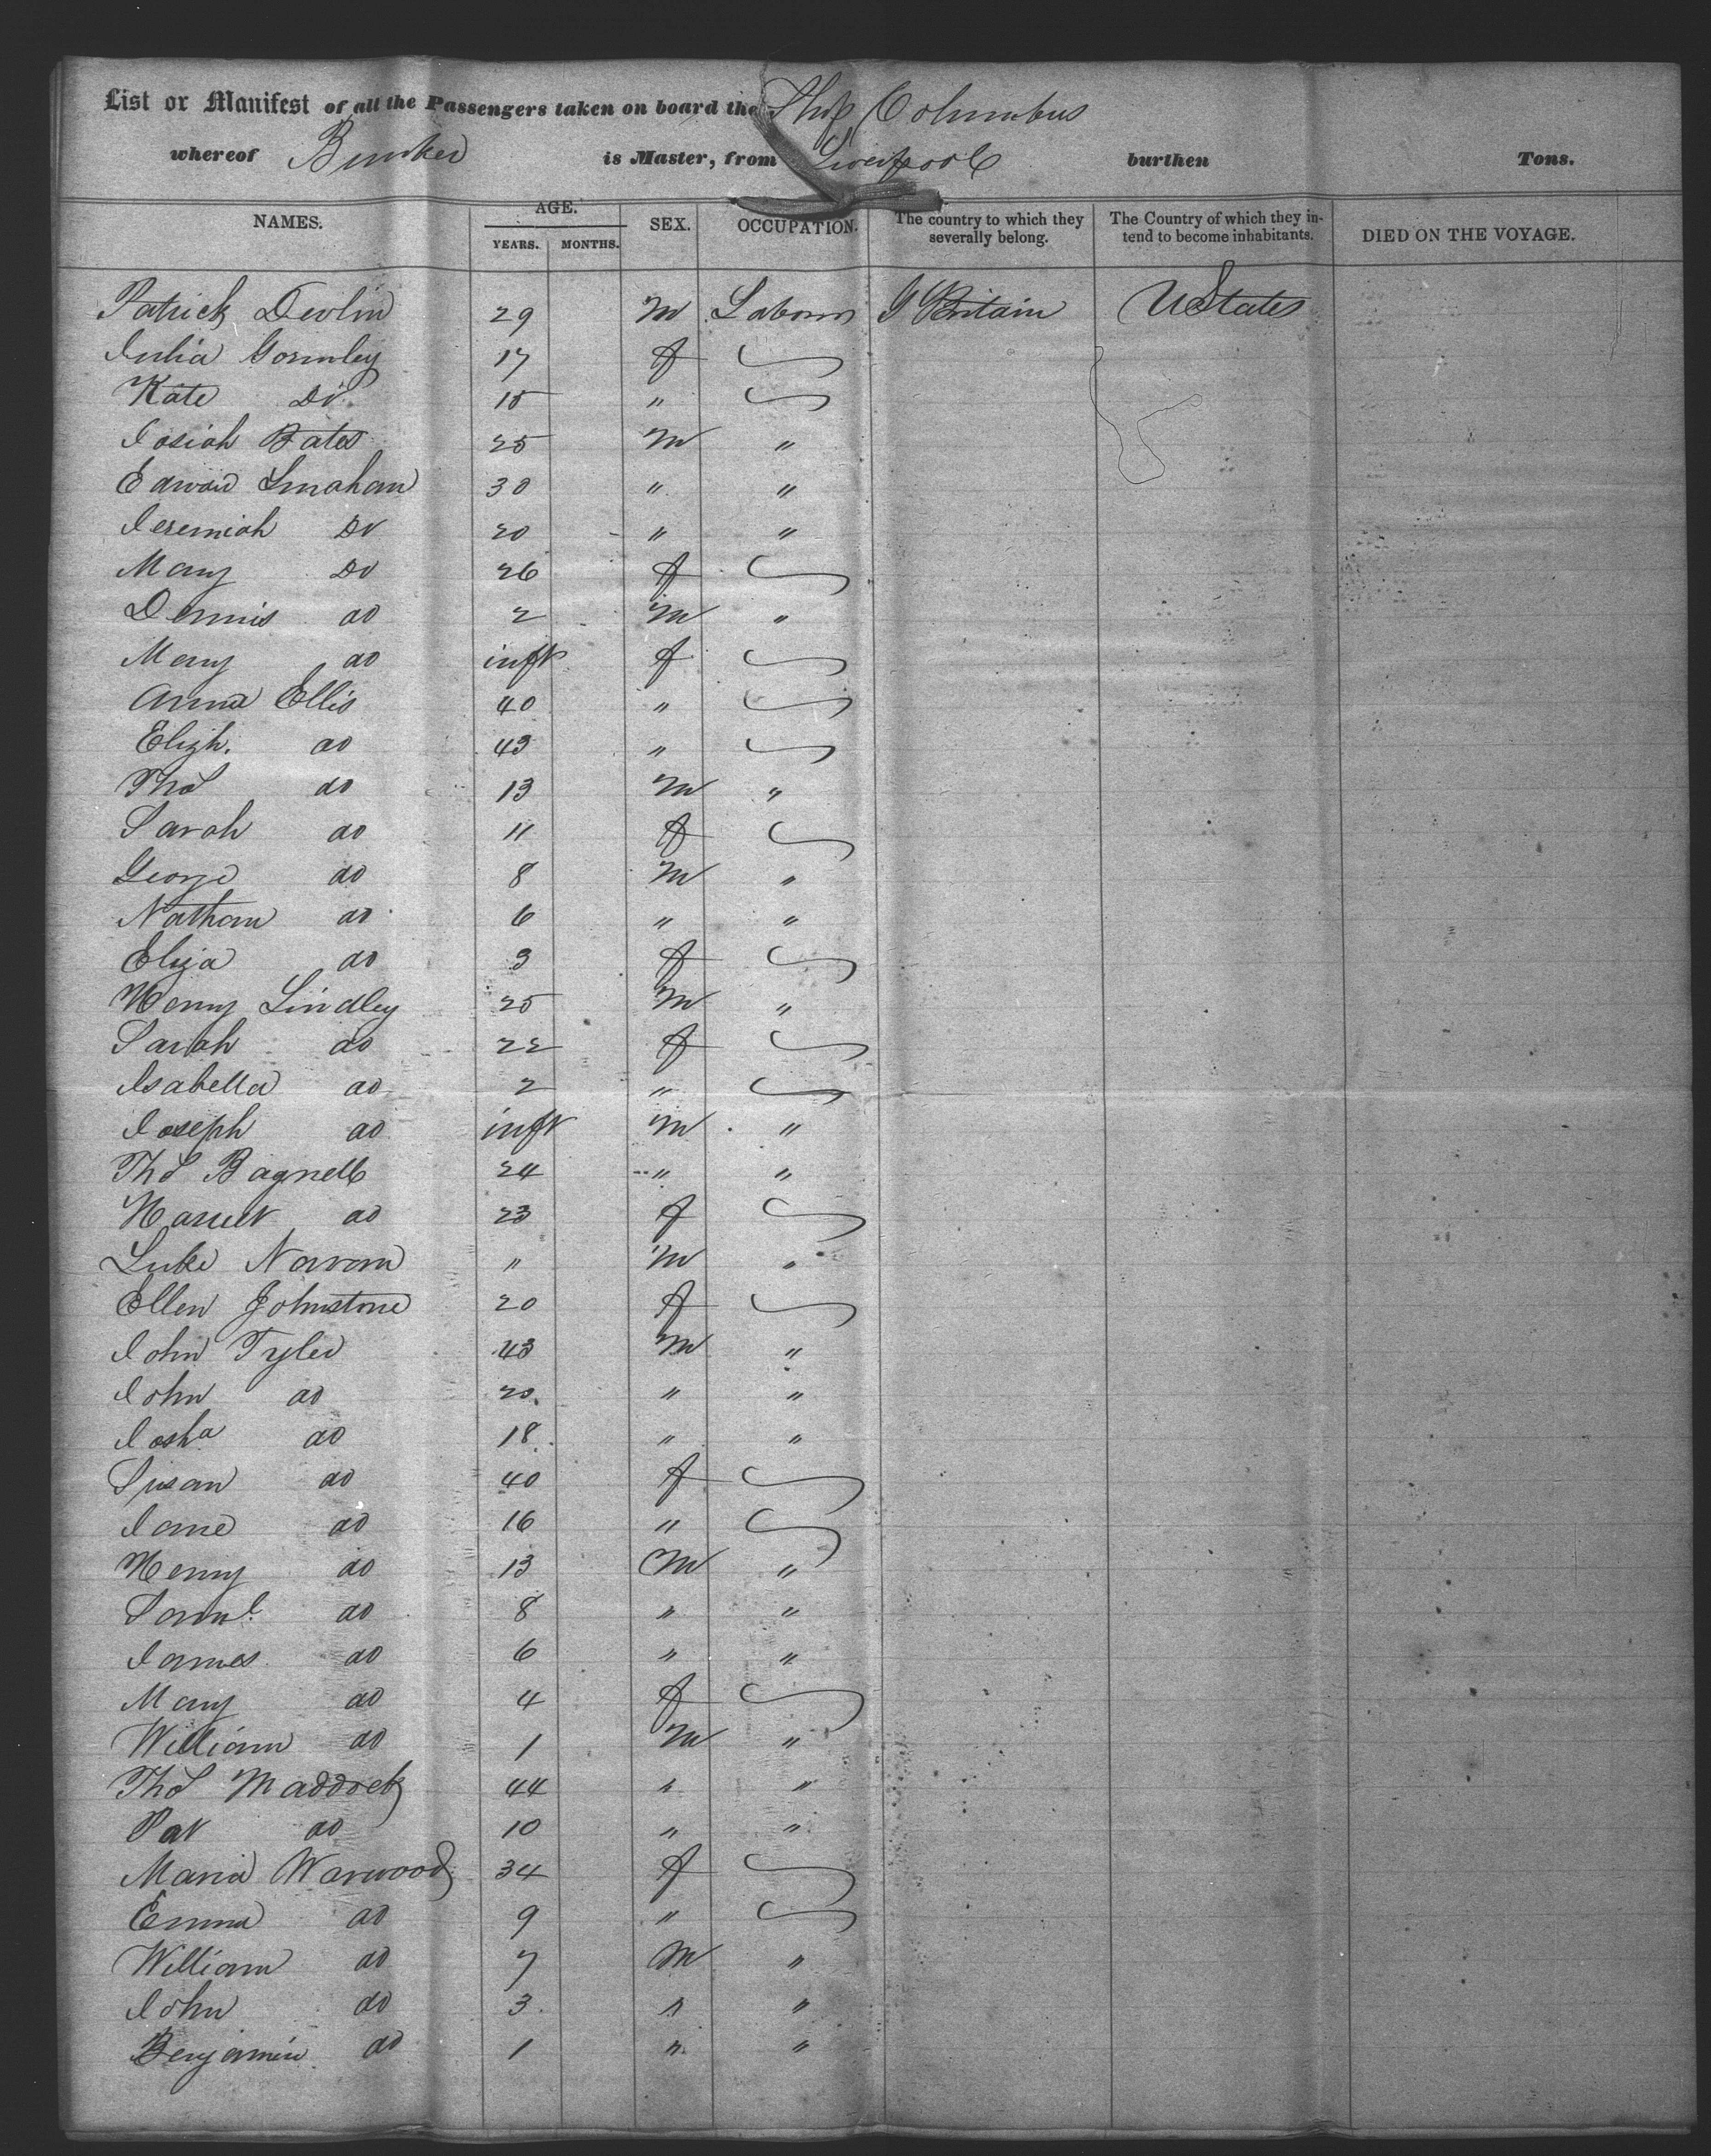 List or Manifest of all the Passengers taken on board the Ship Columbus
whereof Bunker is Master, from Liverpool burthen Tons.
NAMES. AGE. YEARS. MONTHS. SEX. OCCUPATION. The country to which they severally belong. The Country of which they intend to become inhabitants. DIED ON THE VOYAGE.
Patrick Devlin 29 m Laborer G Britain U States
Julia Gormley 17 f
Kate Do 15 "
Josiah Bates 25 m "
Edward Linahan 30 " "
Jeremiah Do 20 " "
Mary Do 26 f
Dennis do 2 m "
Mary do inft f
Anna Ellis 40 "
Elizh. do 43 "
Thos do 13 m "
Sarah do 11 f
George do 8 m "
Nathan do 6 " "
Eliza do 3 f
Henry Lindley 25 m "
Sarah do 22 f
Isabella do 2 "
Joseph do inft m "
Thos Bagnell 24 " "
Harriet do 23 f
Luke Navan " m "
Ellen Johnstone 20 f
John Tyler 43 m "
John do 20 " "
Josha do 18 " "
Susan do 40 f
Jane do 16 "
Henry do 13 m "
Saml do 8 " "
James do 6 " "
Mary do 4 f
William do 1 m "
Thos Maddock 44 " "
Pat do 10 " "
Maria Warwood 34 f
Emma do 9 "
William do 7 m "
John do 3 " "
Benjamin do 1 " "